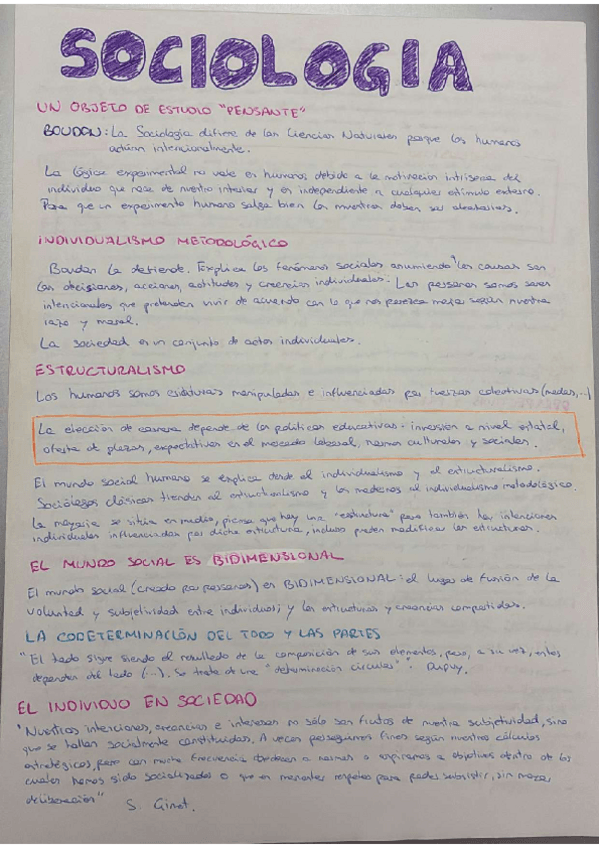 SOCIOLOGIA
UN OBJETO DE ESTUDIO "PENSANTE"
BOUDON: La Sociología difiere de las Ciencias Naturales porque los humanos
actúan intencionalmente.
La lógica experimental no vale en humanos debido a la motivación intrínseca del
individuo que nace de nuestro interior y es independiente a cualquier estímulo externo.
Para que un experimento humano salga bien las muestras deben ser aleatorias.
INDIVIDUALISMO METODOLÓGICO
Boudon la defiende. Explica los fenómenos sociales asumiendo q las causas son
las decisiones, acciones, actitudes y creencias individuales. Las personas somos seres
intencionales que pretenden vivir de acuerdo con lo que nos parezca mejor según nuestra
razo y moral.
La sociedad es un conjunto de actos individuales.
ESTRUCTURALISMO
Los humanos somos criaturas manipuladas e influenciadas por fuerzas colectivas (modas,...)
La elección de carrera depende de las políticas educativas: inversión a nivel estatal,
oferta de plazas, expectativas en el mercado laboral, normas culturales y sociales.
El mundo social humano se explica desde el individualismo y el estructuralismo.
Sociólogos clásicos tienden al estructuralismo y los modernos al individualismo metodológico.
La mayoría se sitúa en medio, piensa que hay una "estructura" pero también hay intenciones
individuales influenciadas por dicha estructura, incluso pueden modificar las estructuras.
EL MUNDO SOCIAL ES BIDIMENSIONAL
El mundo social (creado por personas) es BIDIMENSIONAL: el lugar de fusión de la
voluntad y subjetividad entre individuos; y las estructuras y creencias compartidas.
LA CODETERMINACIÓN DEL TODO Y LAS PARTES
"El todo sigue siendo el resultado de la composición de sus elementos, pero, a su vez, estos
dependen del todo (...). Se trata de una "determinación circular"". Dupuy.
EL INDIVIDUO EN SOCIEDAD
"Nuestras intenciones, creencias e intereses no sólo son frutos de nuestra subjetividad, sino
que se hallan socialmente constituidas. A veces perseguimos fines según nuestros cálculos
estratégicos, pero con mucha frecuencia obedecen a normas o aspiramos a objetivos dentro de los
cuales hemos sido socializados o que es menester respetar para poder subsistir, sin mayor
deliberación"
S. Giner.